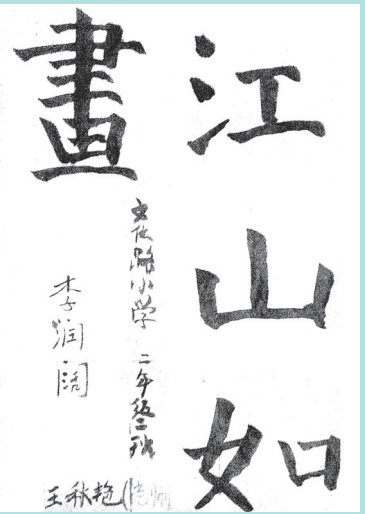 江山如
畫
文化路小学 二年级二班
李润阔
王秋艳